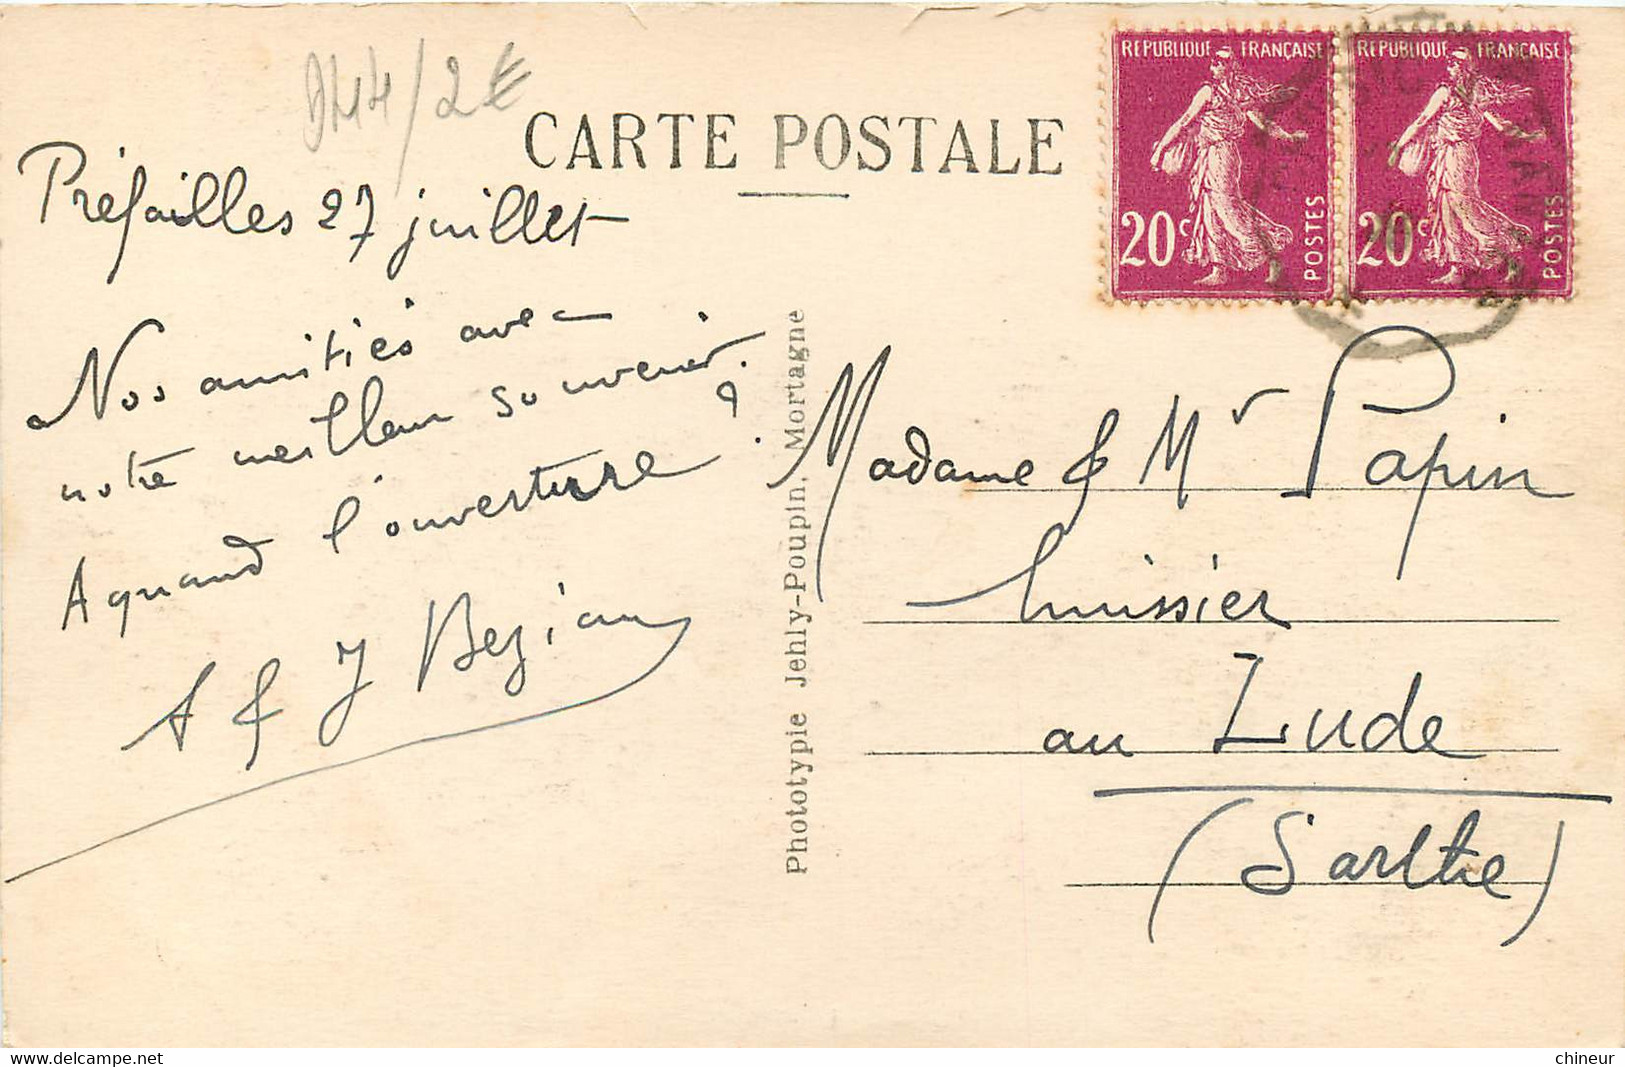 DM4/2€
CARTE POSTALE
RÉPUBLIQUE FRANÇAISE
20c
POSTES
RÉPUBLIQUE FRANÇAISE
20c
POSTES
Préfailles 27 juillet
Nos amitiés avec
notre meilleur souvenir.
A quand l'ouverture ?
A & J Bezian
Phototypie Jehly-Poupin, Mortagne
Madame & Mr Papin
huissier
au Lude
(Sarthe)
www.delcampe.net
chineur